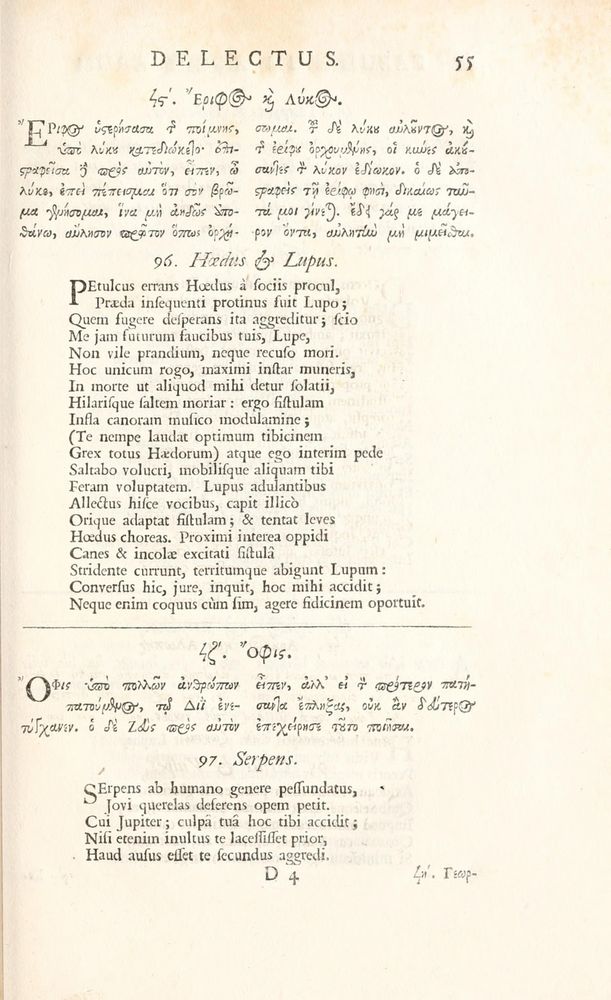 DELECTUS. 55
ϟϛʹ. Ἔριφος ϗ Λύκος.
ἜΡιφος ὑστερήσασα τ ποίμνης,
ὑπὸ λύκου κατεδιώκετο· ἐπι-
στραφεῖσα δ πρὸς αὐτὸν, εἶπεν, ὦ
λύκε, ἐπεὶ πέπεισμαι ὅτι σὸν βρῶ-
μα γενήσομαι, ἵνα μὴ ἀηδῶς ἀπο-
θάνω, αὔλησον πρῶτον ὅπως ὀρχή-
σωμαι. τ δὲ λύκου αὐλοῦντος, ϗ
τ ἐρίφου ὀρχουμένης, οἱ κύνες ἀκού-
σαντες τ λύκον ἐδίωκον. ὁ δὲ ἐπι-
στραφεὶς τῇ ἐρίφῳ φησὶ, δικαίως ταῦ-
τά μοι γίνεται. ἔδει γάρ με μάγει-
ρον ὄντα, αὐλητὴν μὴ μιμεῖσθαι.
96. Hædus & Lupus.
PEtulcus errans Hœdus à ſociis procul,
Præda inſequenti protinus fuit Lupo;
Quem fugere deſperans ita aggreditur; ſcio
Me jam futurum faucibus tuis, Lupe,
Non vile prandium, neque recuſo mori.
Hoc unicum rogo, maximi inſtar muneris,
In morte ut aliquod mihi detur ſolatii,
Hilariſque ſaltem moriar: ergo fiſtulam
Infla canoram muſico modulamine;
(Te nempe laudat optimum tibicinem
Grex totus Hædorum) atque ego interim pede
Saltabo volucri, mobiliſque aliquam tibi
Feram voluptatem. Lupus adulantibus
Allectus hiſce vocibus, capit illicò
Orique adaptat fiſtulam; & tentat leves
Hœdus choreas. Proximi interea oppidi
Canes & incolæ excitati fiſtulâ
Stridente currunt, territumque abigunt Lupum:
Converſus hic, jure, inquit, hoc mihi accidit;
Neque enim coquus cùm ſim, agere fidicinem oportuit.
ϟζʹ. Ὄφις.
ὌΦις ὑπὸ πολλῶν ἀνθρώπων
πατούμενος, τῷ Διῒ ἐνε-
τύγχανεν. ὁ δὲ Ζεὺς πρὸς αὐτὸν
εἶπεν, ἀλλ' εἰ τ πρότερον πατή-
σαντα ἔπληξας, οὐκ ἂν δεύτερος
ἐπεχείρησε τοῦτο ποιῆσαι.
97. Serpens.
SErpens ab humano genere peſſundatus,
Jovi querelas deferens opem petit.
Cui Jupiter; culpâ tuâ hoc tibi accidit;
Niſi etenim inultus te laceſſiſſet prior,
Haud auſus eſſet te ſecundus aggredi.
D 4 ϟηʹ. Γεωρ-